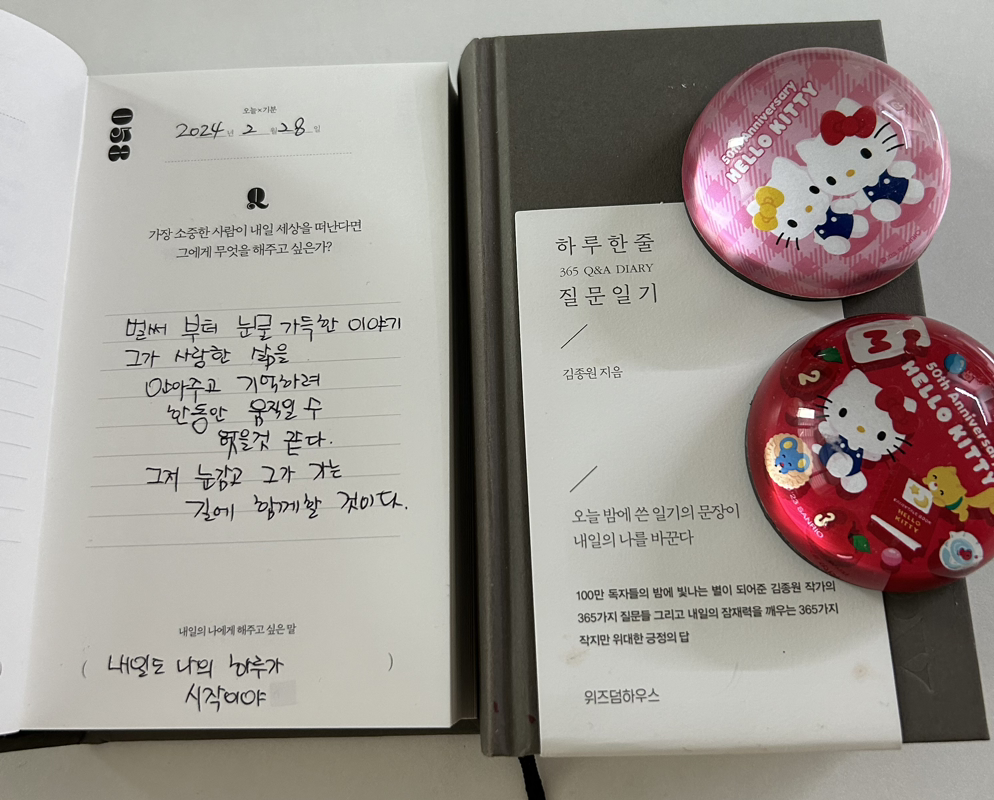 058
오늘×기분
2024년 2월 28일
Q
가장 소중한 사람이 내일 세상을 떠난다면
그에게 무엇을 해주고 싶은가?
벌써 부터 눈물 가득한 이야기
그가 사랑한 삶을
안아주고 기억하려
한동안 움직일 수
없을것 같다.
그저 눈감고 그가 가는
길에 함께할 것이다.
내일의 나에게 해주고 싶은 말
( 내일도 나의 하루가 )
시작이야
하루한줄
365 Q&A DIARY
질문일기
김종원 지음
오늘 밤에 쓴 일기의 문장이
내일의 나를 바꾼다
100만 독자들의 밤에 빛나는 별이 되어준 김종원 작가의
365가지 질문들 그리고 내일의 잠재력을 깨우는 365가지
작지만 위대한 긍정의 답
위즈덤하우스
50th Anniversary
HELLO KITTY
50th Anniversary
HELLO KITTY
2
HELLO
KITTY
23 SANRIO